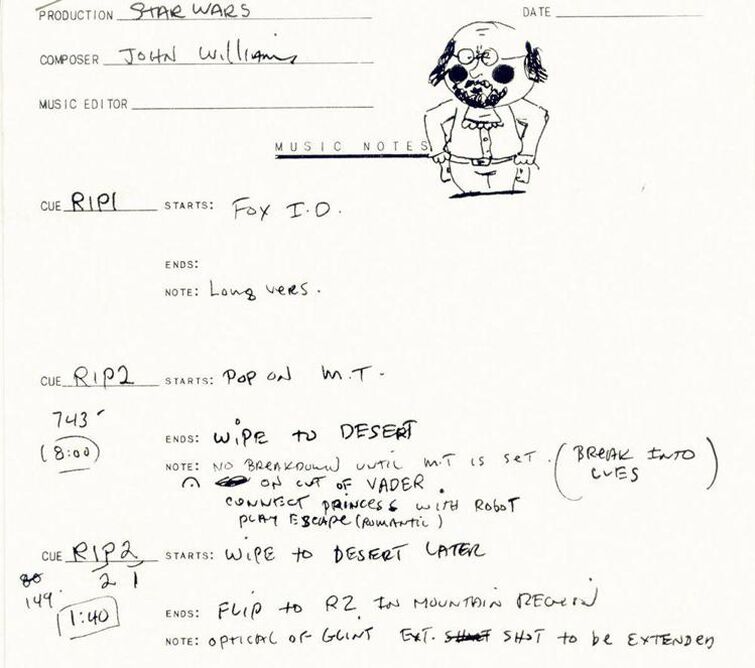 PRODUCTION STAR WARS DATE
COMPOSER JOHN Williams
MUSIC EDITOR
MUSIC NOTES
CUE R1P1 STARTS: FOX I.D.
ENDS:
NOTE: Long vers.
CUE R1P2 STARTS: POP ON M.T.
743'
(8:00)
ENDS: WIPE to DESERT
NOTE: NO BREAKDOWN UNTIL M.T IS SET. (BREAK INTO CUES)
ON CUT OF VADER.
CONNECT PRINCESS WITH ROBOT
PLAY ESCAPE (ROMANTIC)
CUE R1P2 STARTS: WIPE to DESERT LATER
2 1
149.
1:40
ENDS: FLIP to R2 IN MOUNTAIN REGION
NOTE: OPTICAL OF GLINT EXT. SHOT to be EXTENDED